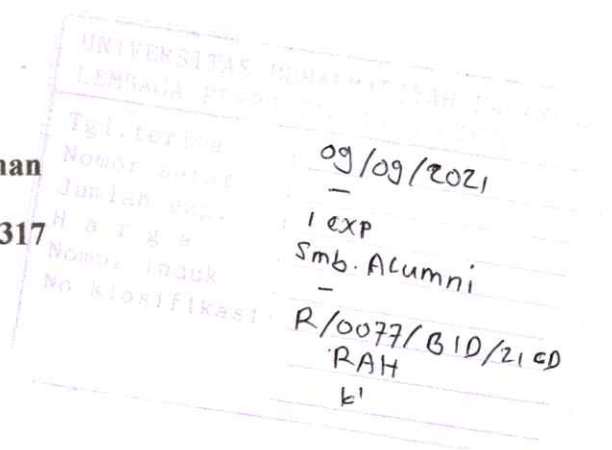 UNIVERSITAS MUHAMMADIYAH
LEMBAGA
Tgl. terima : 09/09/2021
Nomor surat : –
Jumlah exp. : 1 exp
Harga : Smb. Alumni
Nomor induk : –
No klasifikasi : R/0077/BID/21 CD
RAH
k'
nan
317